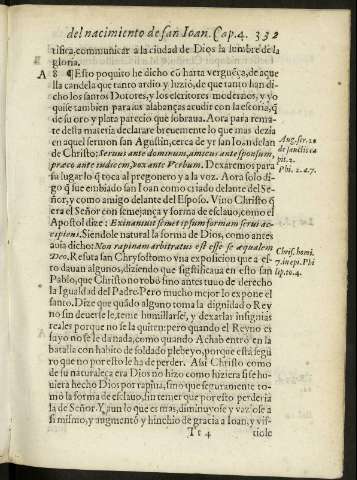 del nacimiento de san Ioan. Cap. 4. 332
tifica, communicar a la ciudad de Dios la lumbre de la
gloria.
A 8 ¶ Esto poquito he dicho cō harta verguēça, de aque
lla candela que tanto ardio y luzio, de que tanto han di-
cho los santos Dotores, y los escritores modernos, y yo
quise tambien para sus alabanças acudir con la escoria, q̃
de su oro y plata parecio que sobraua. Aora para rema-
te desta materia declarare breuemente lo que mas dezia
en aquel sermon san Agustin, cerca de yr san Ioan delan
te de Christo: Seruus ante dominum, amicus ante sponsum,
præco ante iudicem, vox ante Verbum. Dexaremos para
su lugar lo q̃ toca al pregonero y a la voz. Aora solo di-
go q̃ fue embiado san Ioan como criado delante del Se-
ñor, y como amigo delante del Esposo. Vino Christo q̃
era el Señor con semejança y forma de esclauo, como el
Apostol dize: Exinaniuit semet ipsum formam serui ac-
cipiens. Siendole natural la forma de Dios, como antes
auia dicho: Non rapinam arbitratus est esse se æqualem
Deo. Refuta san Chrysostomo vna exposicion que a es-
to dauan algunos, diziendo que significaua en esto san
Pablo, que Christo no robò sino antes tuuo de derecho
la Igualdad del Padre. Pero mucho mejor lo expone el
santo. Dize que quādo alguno toma la dignidad o Rey
no sin deuerle le, teme humillarse, y dexar las insignias
reales porque no se la quiten: pero quando el Reyno es
suyo no se le da nada, como quando Achab entrò en la
batalla con habito de soldado plebeyo, porque està segu
ro que no por esso le ha de perder. Assi Christo como
de su naturaleça era Dios no hizo como hiziera si se hu-
uiera hecho Dios por rapiña, sino que seguramente to-
mò la forma de esclauo, sin temer que por esso perderia
la de Señor. Y aun lo que es mas, diminuyose y vaziose a
si mismo, y augmentò y hinchio de gracia a Ioan, y vis-
Tt 4 tiole
Aug. ser. 20
de sanctis ca
pit. 2.
Phi. 2. a. 7.
Chris. homi.
7. in epi. Phi
lip. to. 4.